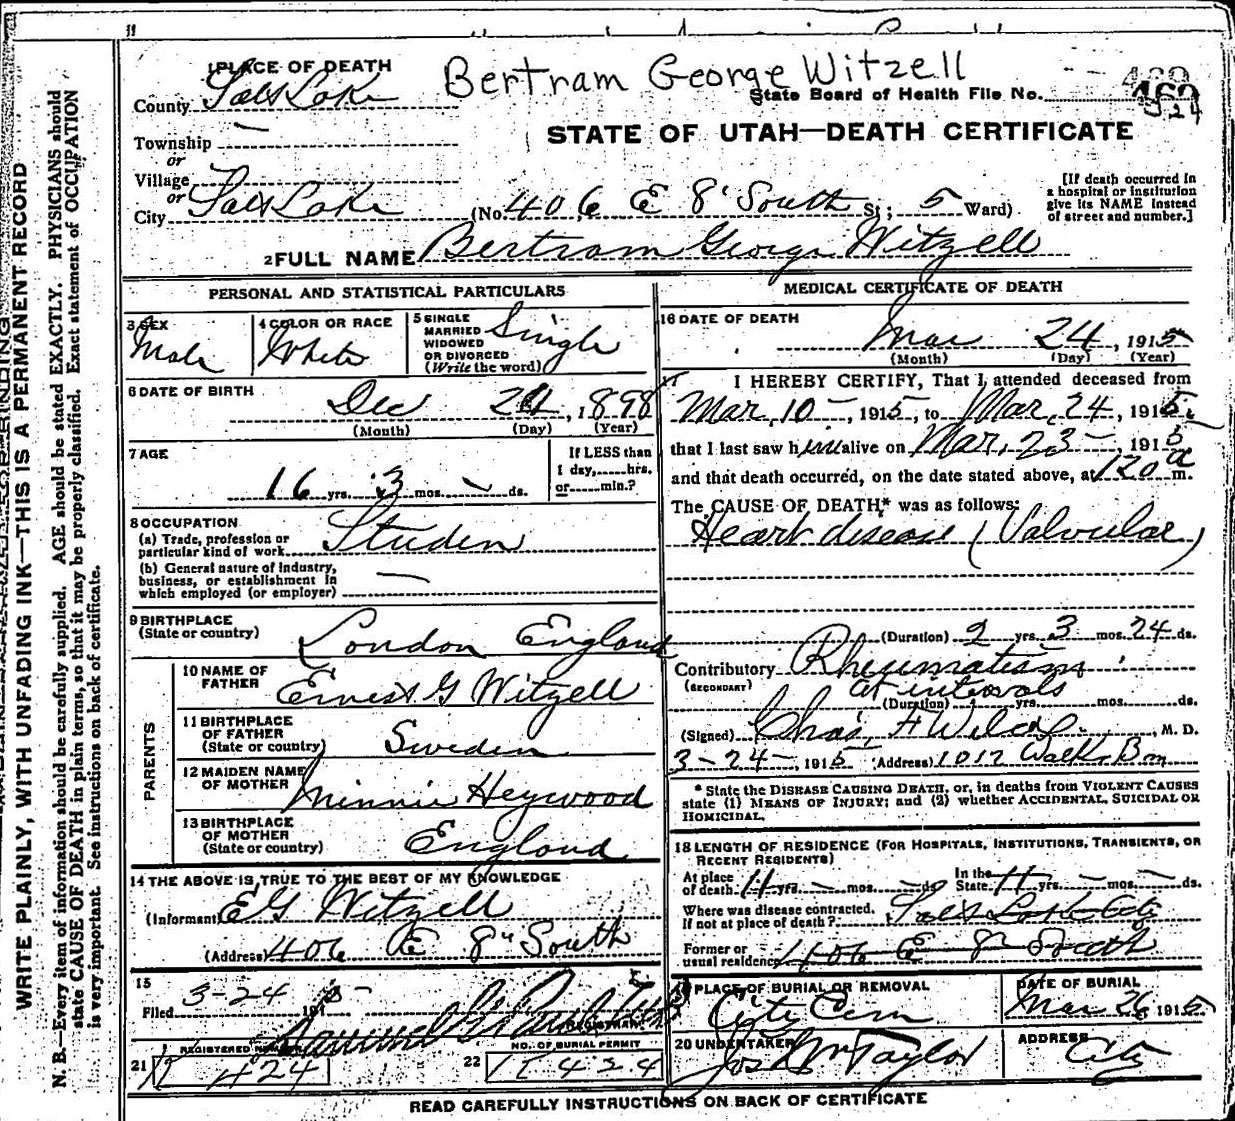 11
1 PLACE OF DEATH
Bertram George Witzell
County Salt Lake
State Board of Health File No. 469
524
Township —
STATE OF UTAH—DEATH CERTIFICATE
or
Village
or
City Salt Lake (No. 406 E 8' South St; 5 Ward)
[If death occurred in a hospital or institution give its NAME instead of street and number.]
2 FULL NAME Bertram George Witzell
PERSONAL AND STATISTICAL PARTICULARS
3 SEX Male
4 COLOR OR RACE White
5 SINGLE MARRIED WIDOWED OR DIVORCED (Write the word) Single
6 DATE OF BIRTH
Dec 24, 1898
(Month) (Day) (Year)
7 AGE
If LESS than 1 day,......hrs. or......min.?
16 yrs. 3 mos. — ds.
8 OCCUPATION
(a) Trade, profession or particular kind of work Student
(b) General nature of industry, business, or establishment in which employed (or employer) —
9 BIRTHPLACE
(State or country) London England
PARENTS
10 NAME OF FATHER Ernest G Witzell
11 BIRTHPLACE OF FATHER (State or country) Sweden
12 MAIDEN NAME OF MOTHER Minnie Heywood
13 BIRTHPLACE OF MOTHER (State or country) England
14 THE ABOVE IS TRUE TO THE BEST OF MY KNOWLEDGE
(Informant) E G Witzell
(Address) 406 E 8" South
15
Filed 3-24 1915
REGISTRAR
REGISTERED NUMBER
21 K 424
NO. OF BURIAL PERMIT
22 K 424
MEDICAL CERTIFICATE OF DEATH
16 DATE OF DEATH
Mar 24, 1915
(Month) (Day) (Year)
17 I HEREBY CERTIFY, That I attended deceased from
Mar, 10 —, 1915, to Mar, 24, 1915,
that I last saw him alive on Mar, 23 —, 1915
and that death occurred, on the date stated above, at 120 a m.
The CAUSE OF DEATH* was as follows:
Heart disease (Valvular)
(Duration) 2 yrs. 3 mos. 24 ds.
Contributory Rheumatism
(SECONDARY) at intervals
(Duration) yrs. mos. ds.
(Signed) Chas, F Wilcox, M. D.
3-24-, 1915 (Address) 1012 Walk. B
* State the DISEASE CAUSING DEATH, or, in deaths from VIOLENT CAUSES
state (1) MEANS OF INJURY; and (2) whether ACCIDENTAL, SUICIDAL OR
HOMICIDAL.
18 LENGTH OF RESIDENCE (FOR HOSPITALS, INSTITUTIONS, TRANSIENTS, OR
RECENT RESIDENTS)
At place of death 11 yrs. — mos. — ds. In the State 11 yrs. — mos. — ds.
Where was disease contracted, If not at place of death? Salt Lake City
Former or usual residence 406 E 8" South
19 PLACE OF BURIAL OR REMOVAL City Cem
DATE OF BURIAL Mar 26 1915
20 UNDERTAKER Jos Wm Taylor
ADDRESS City
READ CAREFULLY INSTRUCTIONS ON BACK OF CERTIFICATE
WRITE PLAINLY, WITH UNFADING INK—THIS IS A PERMANENT RECORD
N. B.—Every item of information should be carefully supplied. AGE should be stated EXACTLY. PHYSICIANS should
state CAUSE OF DEATH in plain terms, so that it may be properly classified. Exact statement of OCCUPATION
is very important. See instructions on back of certificate.